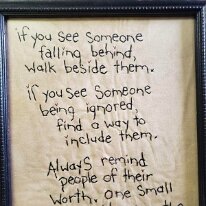 if you see someone
falling behind,
walk beside them.
if you see someone
being ignored,
find a way to
include them.
Always remind
people of their
worth. one small
the